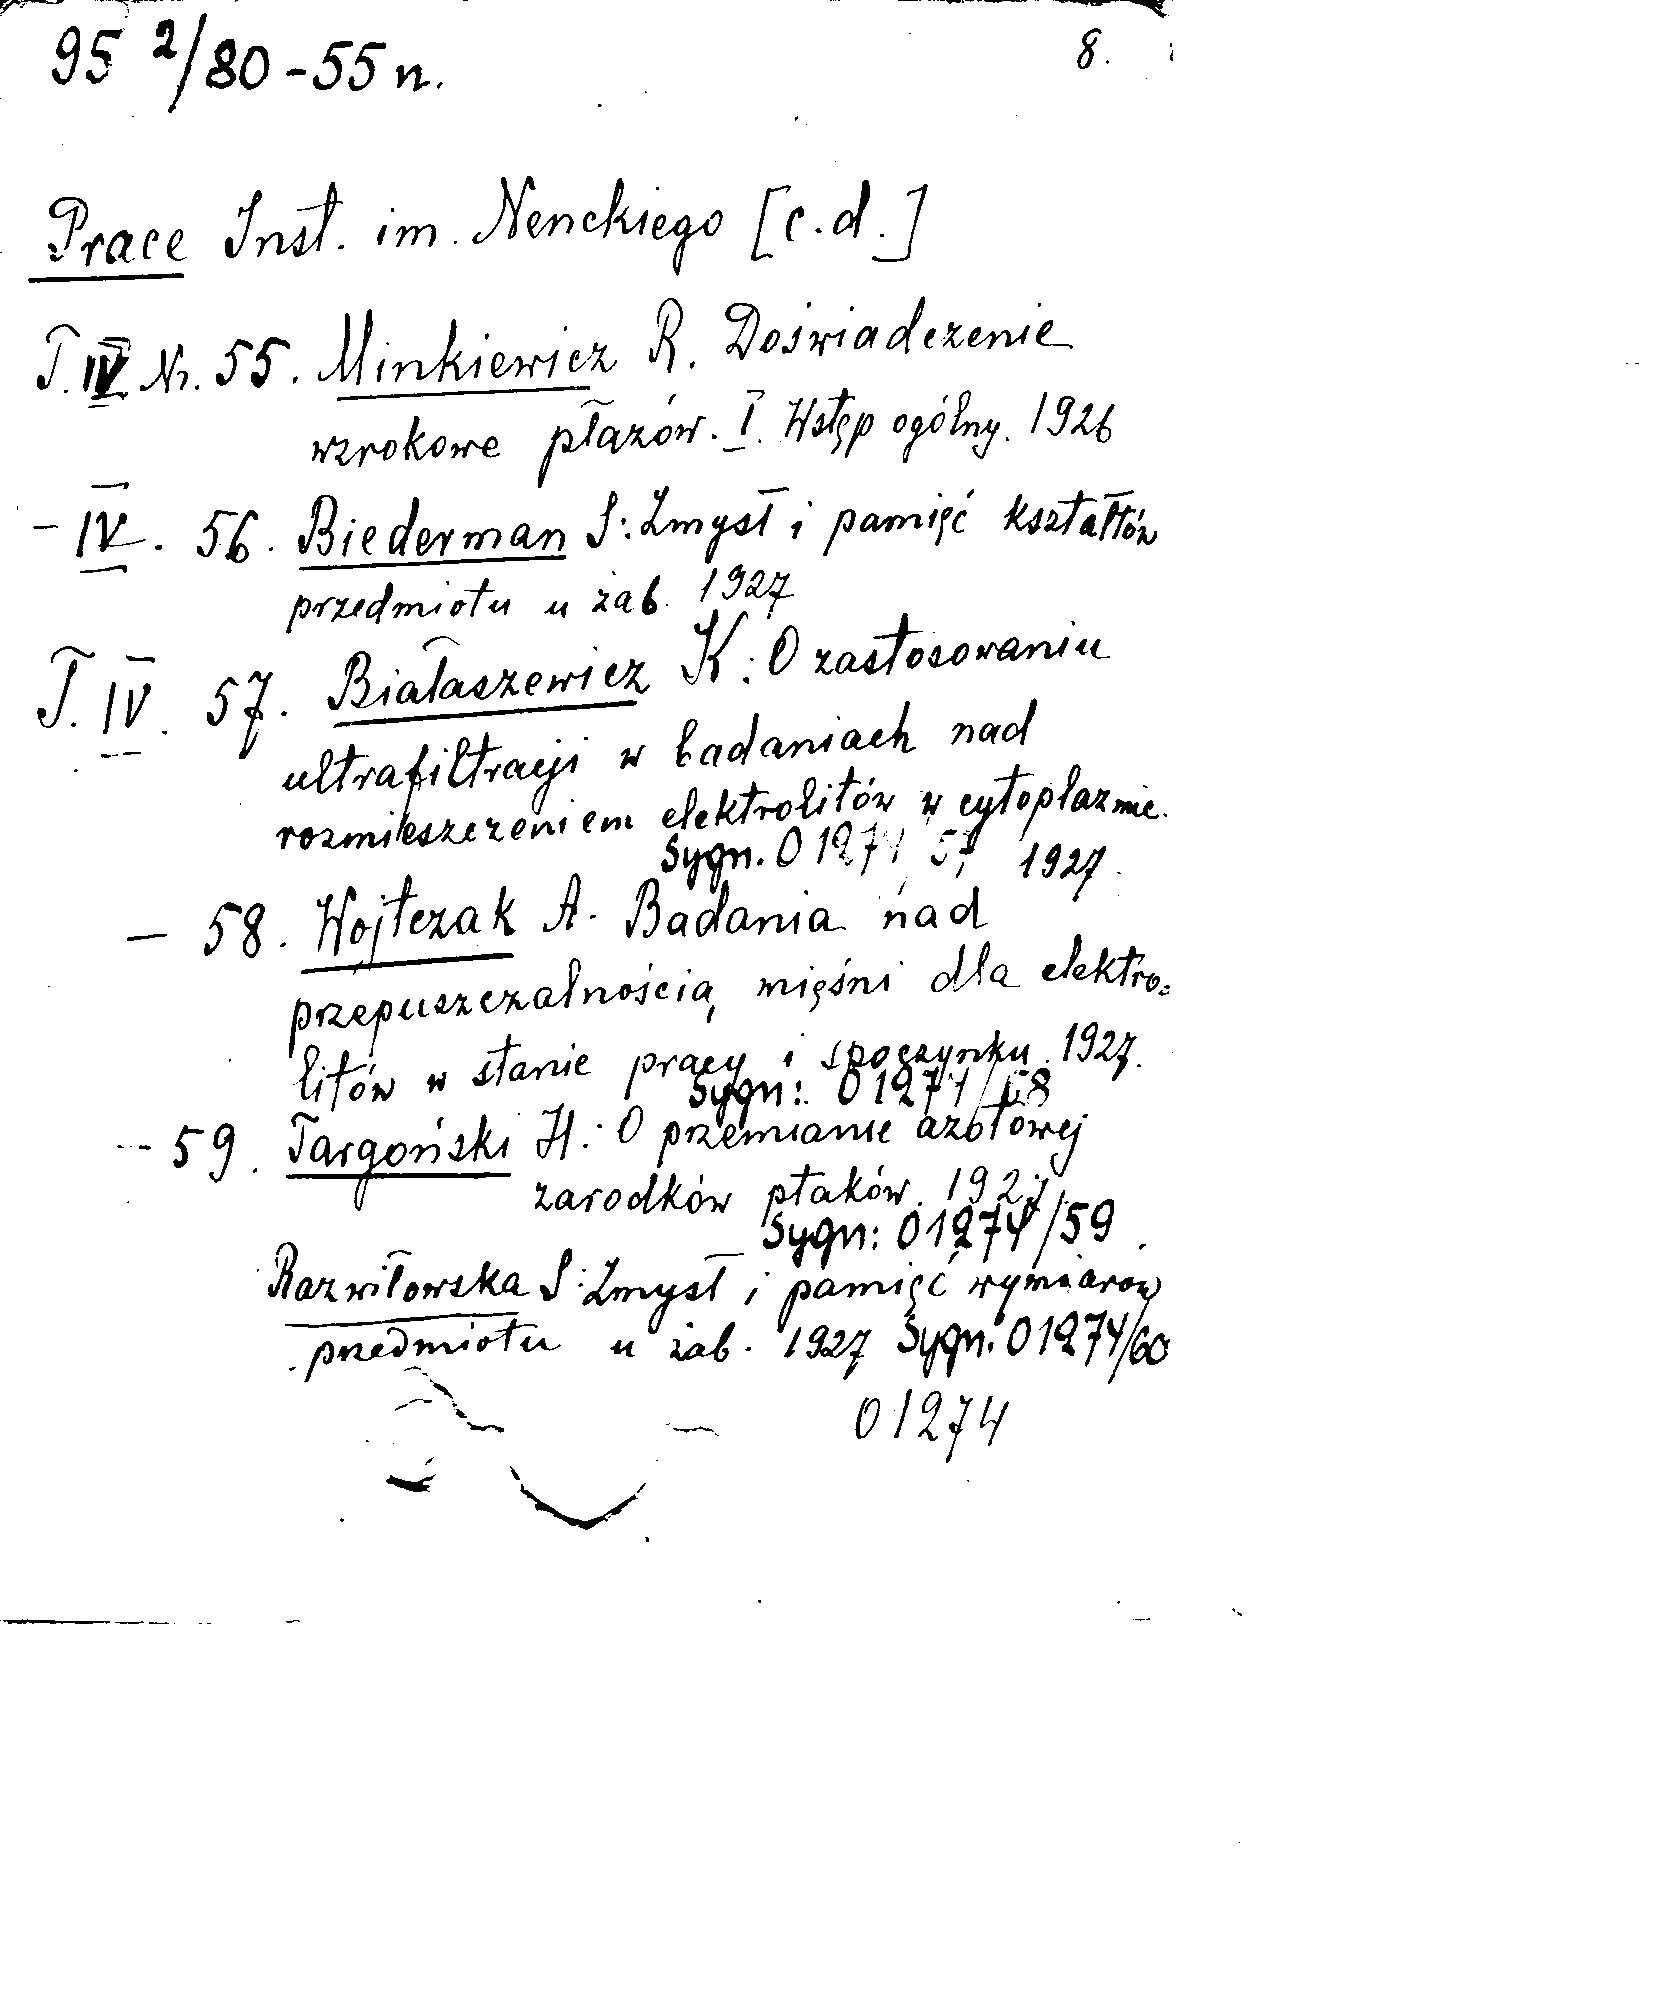 95 2/80-55 n.
8.
Prace Inst. im. Nenckiego [c.d.]
T. IV Nr. 55. Minkiewicz R. Doświadczenie
wzrokowe płazów. I. Wstęp ogólny. 1926
- IV. 56. Biederman S: Zmysł i pamięć kształtów
przedmiotu u żab. 1927
T. IV. 57. Białaszewicz K: O zastosowaniu
ultrafiltracji w badaniach nad
rozmieszczeniem elektrolitów w cytoplazmie.
Sygn. 01274 57 1927.
- 58. Wojtczak A. Badania nad
przepuszczalnością mięśni dla elektro=
litów w stanie pracy i spoczynku. 1927.
Sygn: 01274/58
- 59. Targoński H.: O przemianie azotowej
zarodków ptaków. 1927
Sygn: 01274/59
Razwiłowska S: Zmysł i pamięć wymiarów
przedmiotu u żab. 1927 Sygn: 01274/60
01274